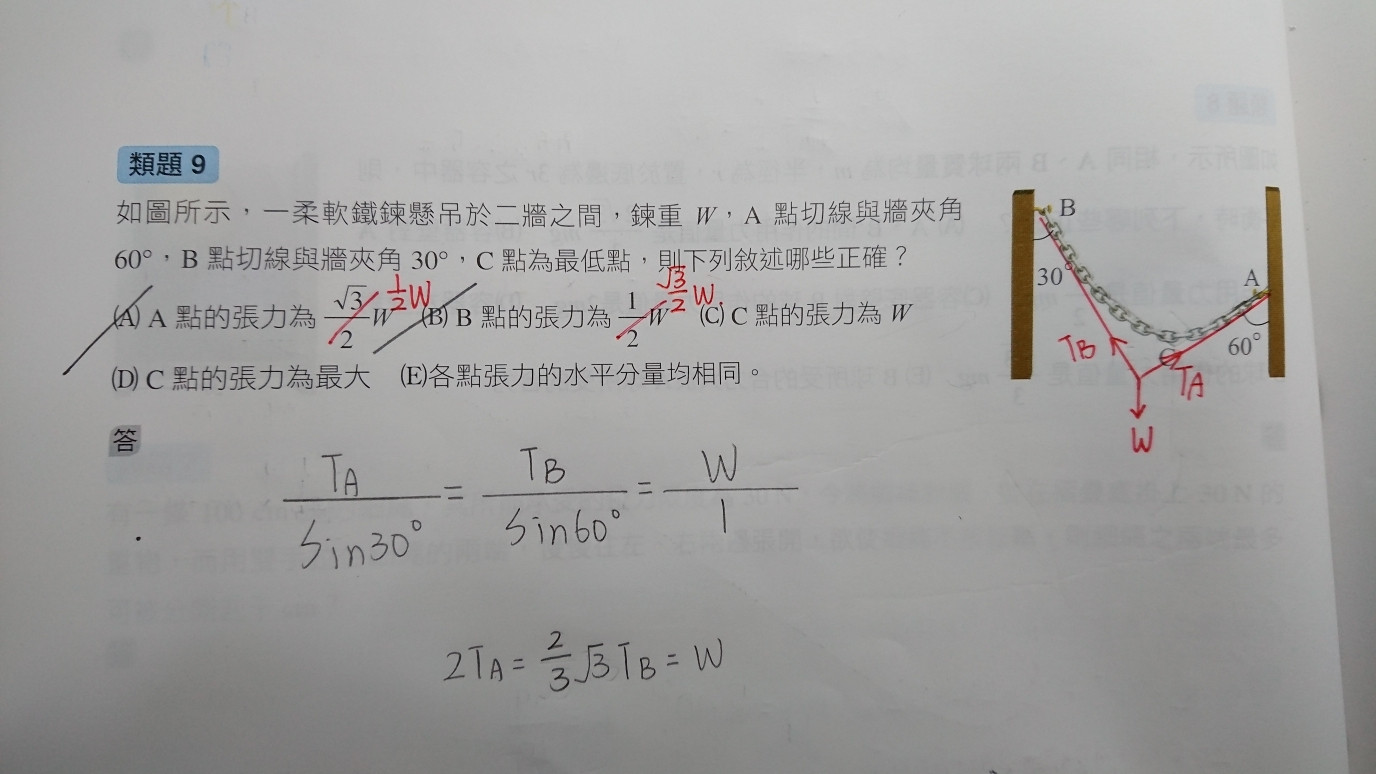 類題 9
如圖所示，一柔軟鐵鍊懸吊於二牆之間，鍊重 W，A 點切線與牆夾角
60°，B 點切線與牆夾角 30°，C 點為最低點，則下列敘述哪些正確？
(A) A 點的張力為 √3/2 W 1/2 W (B) B 點的張力為 1/2 W √3/2 W. (C) C 點的張力為 W
(D) C 點的張力為最大 (E)各點張力的水平分量均相同。
B
30°
A
60°
C
TB
TA
W
答
TA/Sin30° = TB/Sin60° = W/1
2TA = 2/3 √3 TB = W